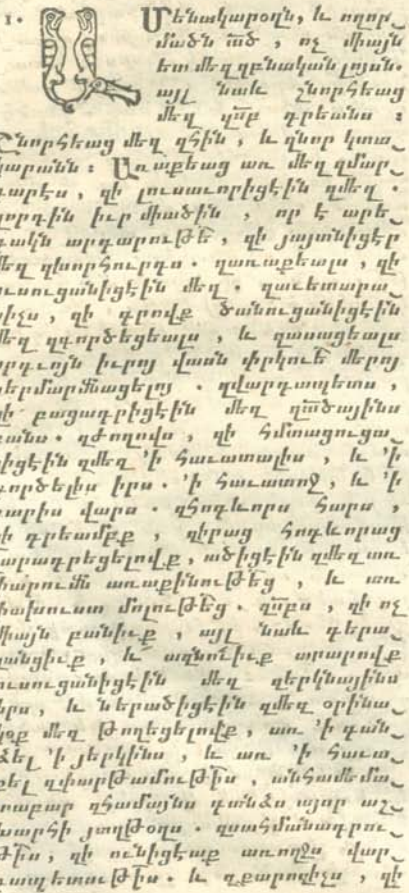 1. Մենակարօղն, և ողոր֊
մածն ած, ոչ միայն
ետ մեզ զբնական լոյսն.
այլ նաև շնորհեաց
մեզ զսբ գրեանս :
Շնորհեաց մեզ զհին, և զնոր կտա֊
կարանն : Առաքեաց առ մեզ զմար֊
գարէս, զի լուսաւորիցէին զմեզ .
զորդին իւր միածին, որ է արե֊
գակն արդարութե, զի յայտնիցէր
մեզ զխորհուրդս . զառաքեալս, զի
ուսուցանիցէին մեզ . զաւետարա֊
նիչս, զի գրովք ծանուցանիցէին
մեզ զգործեցեալս, և զասացեալս
որդւոյն իւրոյ վասն փրկուե մերոյ
մերմարմնացելոյ . զվարդապետս,
զի բացադրիցէին մեզ զածայինս
բանս . զժողովս, զի հմտացուցա֊
նիցէին զմեզ 'ի հաւատալիս, և 'ի
գործելիս իրս . 'ի հաւատոջ, և 'ի
բարիս վարս . զհոգևորս հարս,
զի գրեամբք, զիրաց հոգևորաց
շարադրեցելովք, ածիցէին զմեզ առ
յարումն առաքինութեց, և առ
փախուստ մոլութեց . զսբս, զի ոչ
միայն բանիւք, այլ նաև գերա֊
զանցիւք, և ազնուիւք արարովք
ուսուցանիցէին մեզ զերկնայինս
իրս, և ներածիցէին զմեզ օրինա֊
կօք մեզ թողեցելովք, առ 'ի գան֊
ձել 'ի յերկինս, և առ 'ի հաւա֊
քել զփարթամութիս, անհամեմա֊
տաբար զհամայնս գանձս այսր աշ֊
խարհի յաղթօղս . զսահմանադրու֊
թիս, զի ունիցեաք առողջս վար֊
դապետութիս . և զքարոզիչս, զի